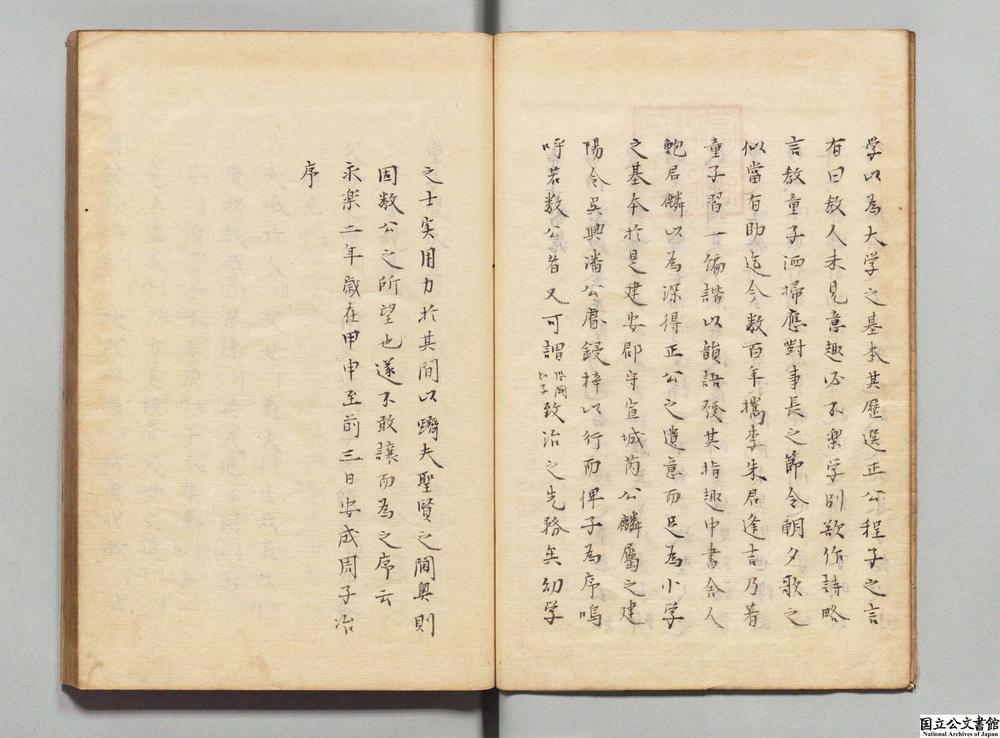 学以為大学之基本其歴選正公程子之言
有曰教人未見意趣必不楽学別欲作詩略
言教童子洒掃應對事長之節令朝夕歌之
似當有助迄今数百年檇李朱君逢吉乃著
童子習一編諧以韻語發其指趣中書舍人
鮑君麟以為深得正公之遺意而足為小学
之基本於是建安郡守宣城芮公麟屬之建
陽令吳興潘公鋟梓以行而俾子為序嗚
呼若数公者又可謂知致治之先務矣幼学
之士実用力於其間以躋夫聖賢之閫奥則
固数公之所望也遂不敢讓而為之序云
永楽二年歳在甲申至前三日安成周子冶
序
国立公文書館
National Archives of Japan